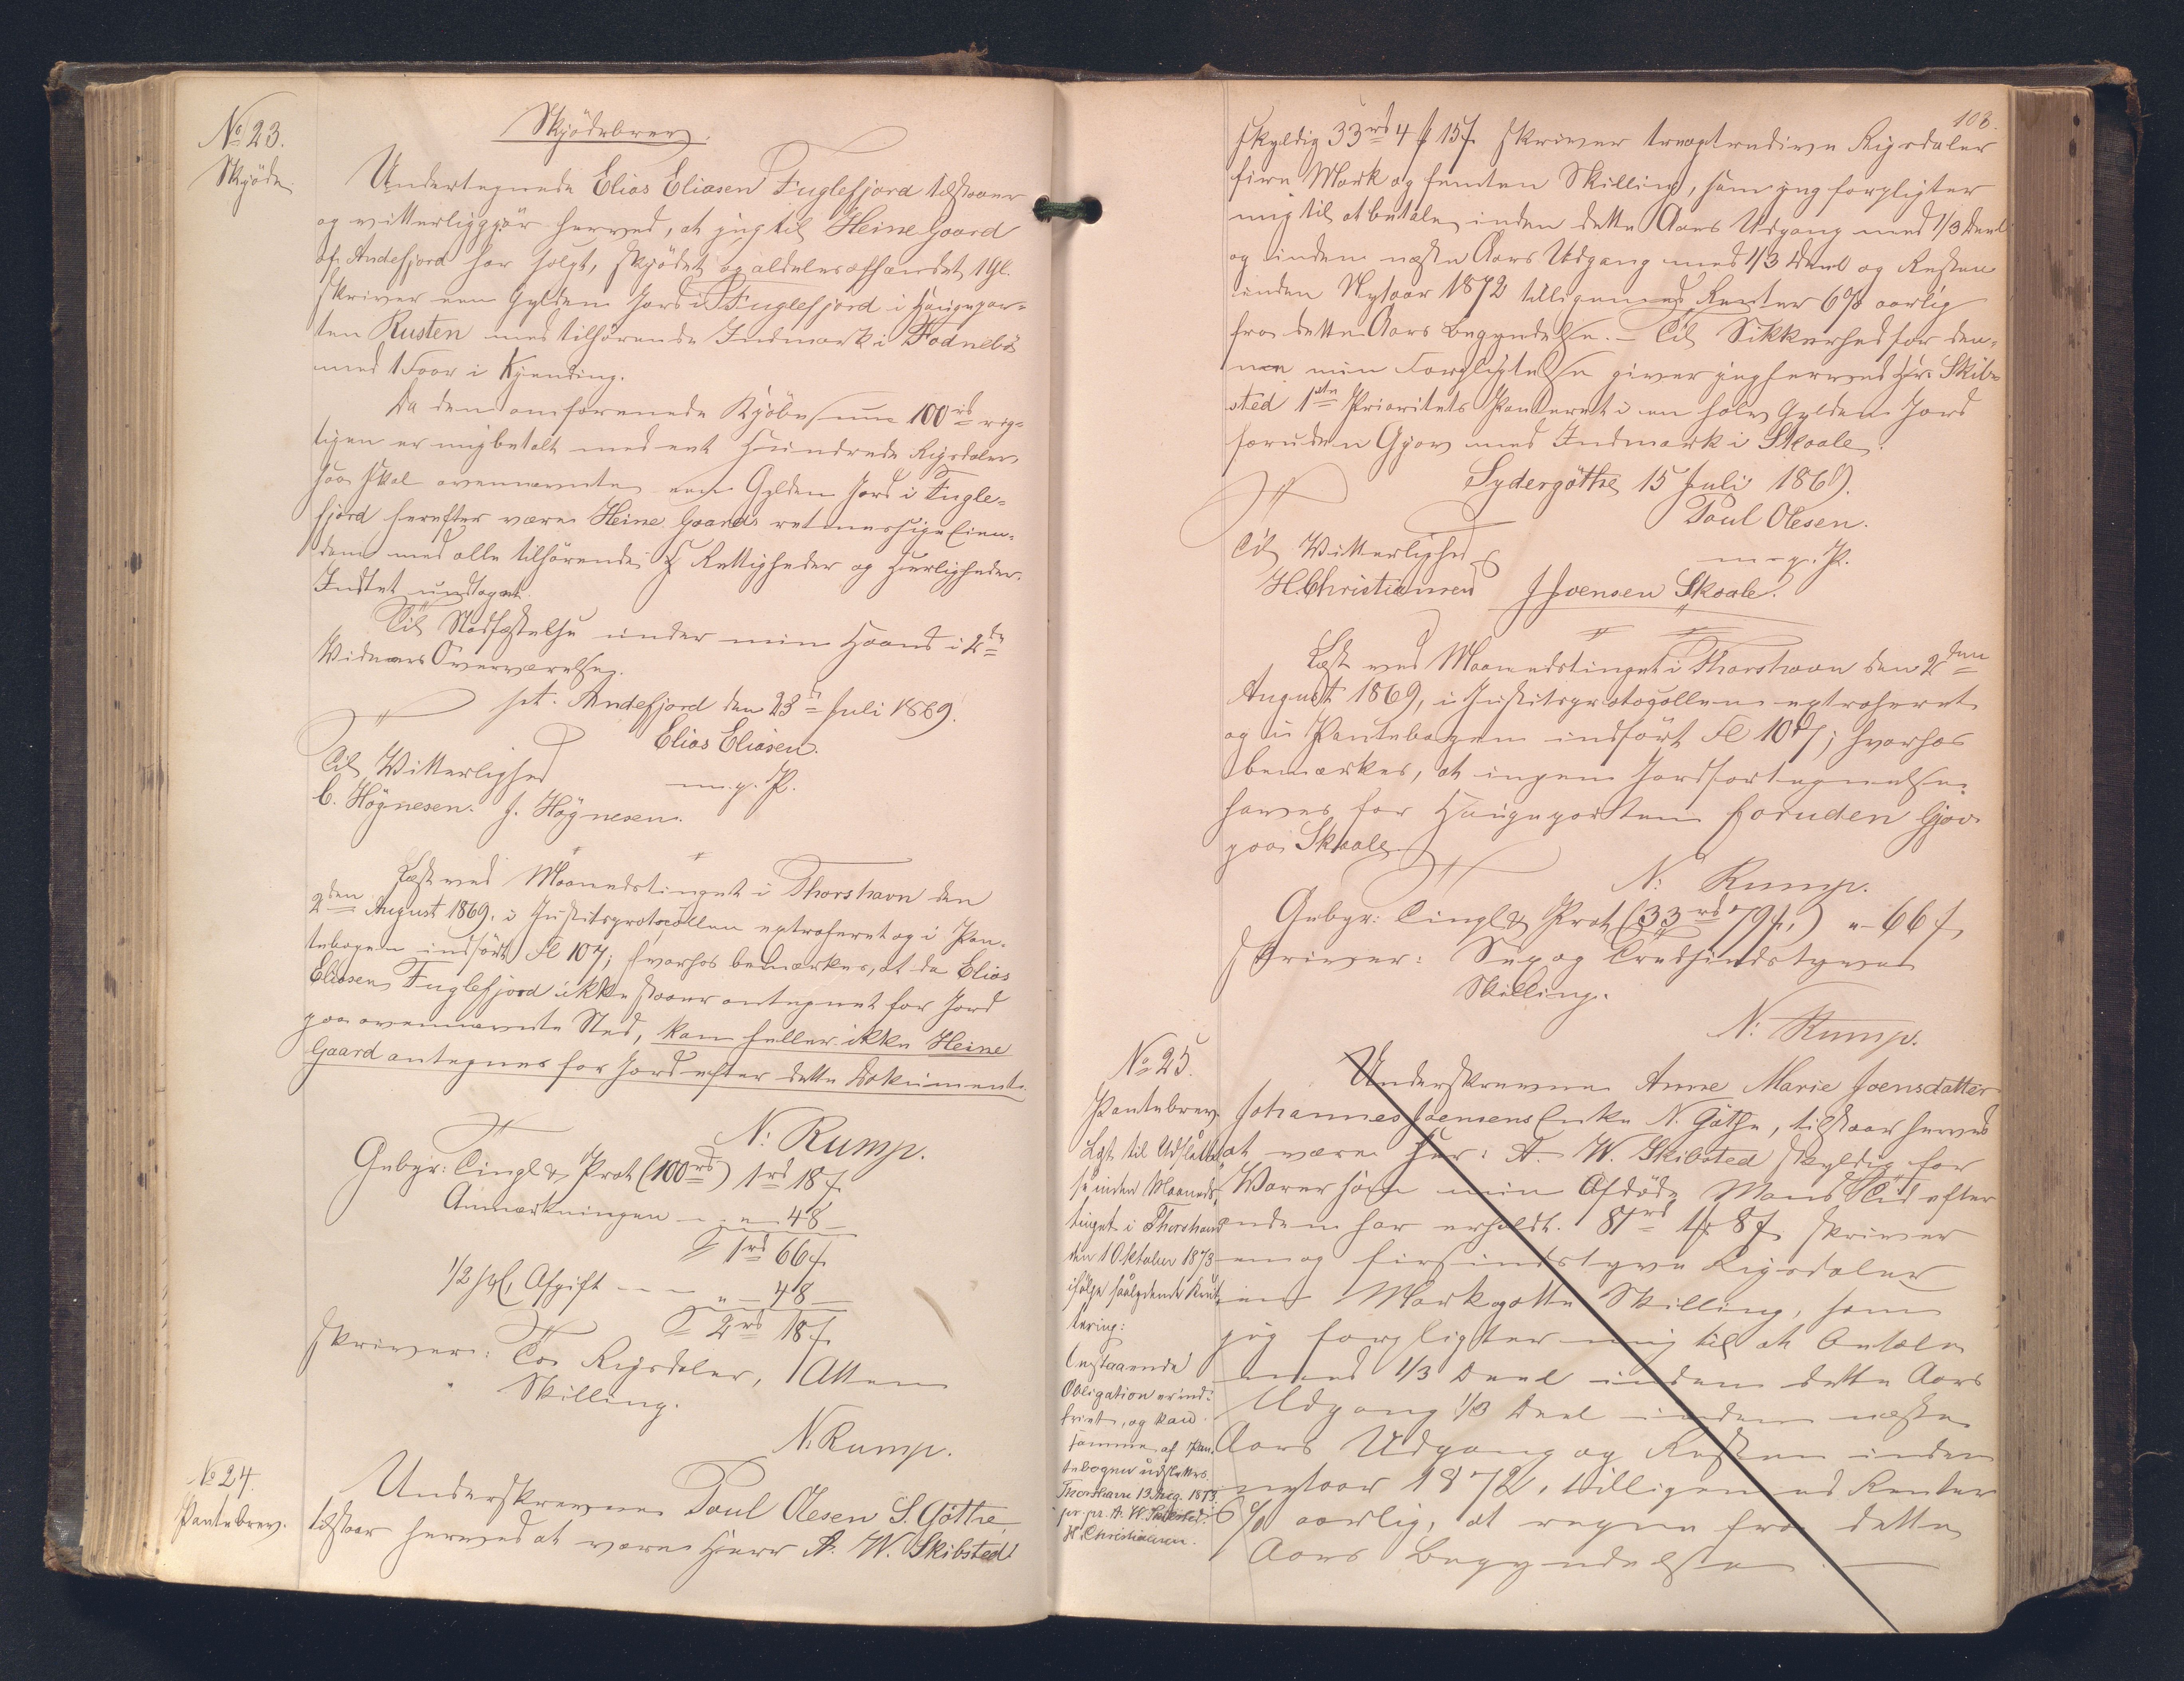 No 23.
Skjøde.
Skjødebrev.
Undertegnede Elias Eliasen Fuglefjord tilstaaer
og vitterliggjør herved, at jeg til Heine Gaard
af Andefjord har solgt, skjødet og aldeles afhændet 1 Gl.
skriver een Gylden Jord i Fuglefjord i Haugepar-
ten Rusten med tilhørende Indmark i Fodnebø
med 1 Foor i Kjending.
Da den omforenede Kjøbesum 100 rd rig-
tigen er mig betalt med eet Hundrede Rigsdaler,
saa skal ovennævnte een Gylden Jord i Fugle-
fjord herefter være Heine Gaards retmæssige Eien-
dom med alle tilhørende Rettigheder og Herligheder,
Intet undtaget.
Til Stadfæstelse under min Haand i 2de
Vidners Overværelse.
pt. Andefjord den 23d Juli 1869.
Elias Eliasen.
m. p. P.
Til Vitterlighed
C. Høgnesen. J. Høgnesen.
Læst ved Maanedstinget i Thorshavn den
2den August 1869, i Justitsprotocollen extraheret og i Pan-
tebogen indført Fl 107; hvorhos bemærkes, at da Elias
Eliasen Fuglefjord ikke staaer antegnet for Jord
paa ovennævnte Sted, kan heller ikke Heine
Gaard antegnes for Jord efter dette Dokument.
N: Rump.
Gebyr: Tingl & Prot (100 rd) 1 rd 18 s
Anmærkningen — „ — 48 —
1 rd 66 s
1/2 pCt, Afgift — — „ — 48 —
2 rd 18 s
skriver: To Rigsdaler, Atten
Skilling.
N: Rump.
No 24.
Pantebrev.
Underskrevne Poul Olesen S. Gøthe,
tilstaar herved at være Herr A. W. Skibsted
108.
skyldig 33 rd 4 ℔ 15 s skriver treogtredive Rigsdaler
fire Mark og femten Skilling, som jeg forpligter
mig til at betale inden dette Aars Udgang med 1/3 Deel
og inden næste Aars Udgang med 1/3 Deel og Resten
inden Nytaar 1872 tilligemed Renter 6% aarlig
fra dette Aars Begyndelse. — Til Sikkerhed for den-
ne min Forpligtelse giver jeg herved Hr. Skib-
sted 1ste Prioritets Panteret i en halv Gylden Jord
foruden Gjov med Indmark i Skaale.
Sydergøthe 15 Juli 1869.
Poul Olesen.
m. p. P.
Til Vitterlighed
H. Christiansen J Joensen Skaale.
Læst ved Maanedstinget i Thorshavn den 2den
August 1869, i Justitsprotocollen extraheret
og i Pantebogen indført Fl 107; hvorhos
bemærkes, at ingen Jordfortegnelse
haves for Hauqeparten foruden Gjov
paa Skaale.
N: Rump.
Gebyr: Tingl & Prot (33 rd 79 s,) „ — 66 s,
skriver: Sex og Tredsindstyve
Skilling.
N: Rump.
No 25.
Pantebrev.
Læst til Udslettel-
se inden Maaneds-
tinget i Thorshavn
den 1 Oktober 1873
ifølge saalydende Kvit-
tering:
Obligation er ind-
friet, og kan
samme af Pan-
tebogen udslettes.
Thorshavn 19 Aug. 1873.
pr. pr. A. W. Skibsted.
H. Christiansen.
Underskrevne Anne Marie Joensdatter
Johannes Joensens Enke N. Gøthe, tilstaar herved
at være Herr: A. W. Skibsted skyldig for
Varer som min Afdøde Mand Tid efter
anden har erholdt. 81 rd 1 ℔ 8 s skriver
en og firsindstyve Rigsdaler
en Mark og otte Skilling, som
jeg forpligter mig til at betale
med 1/3 Deel inden dette Aars
Udgang 1/3 Deel inden næste
Aars Udgang og Resten inden
nytaar 1872, tilligemed Renter
6% aarlig, at regne fra dette
Aars Begyndelse. —